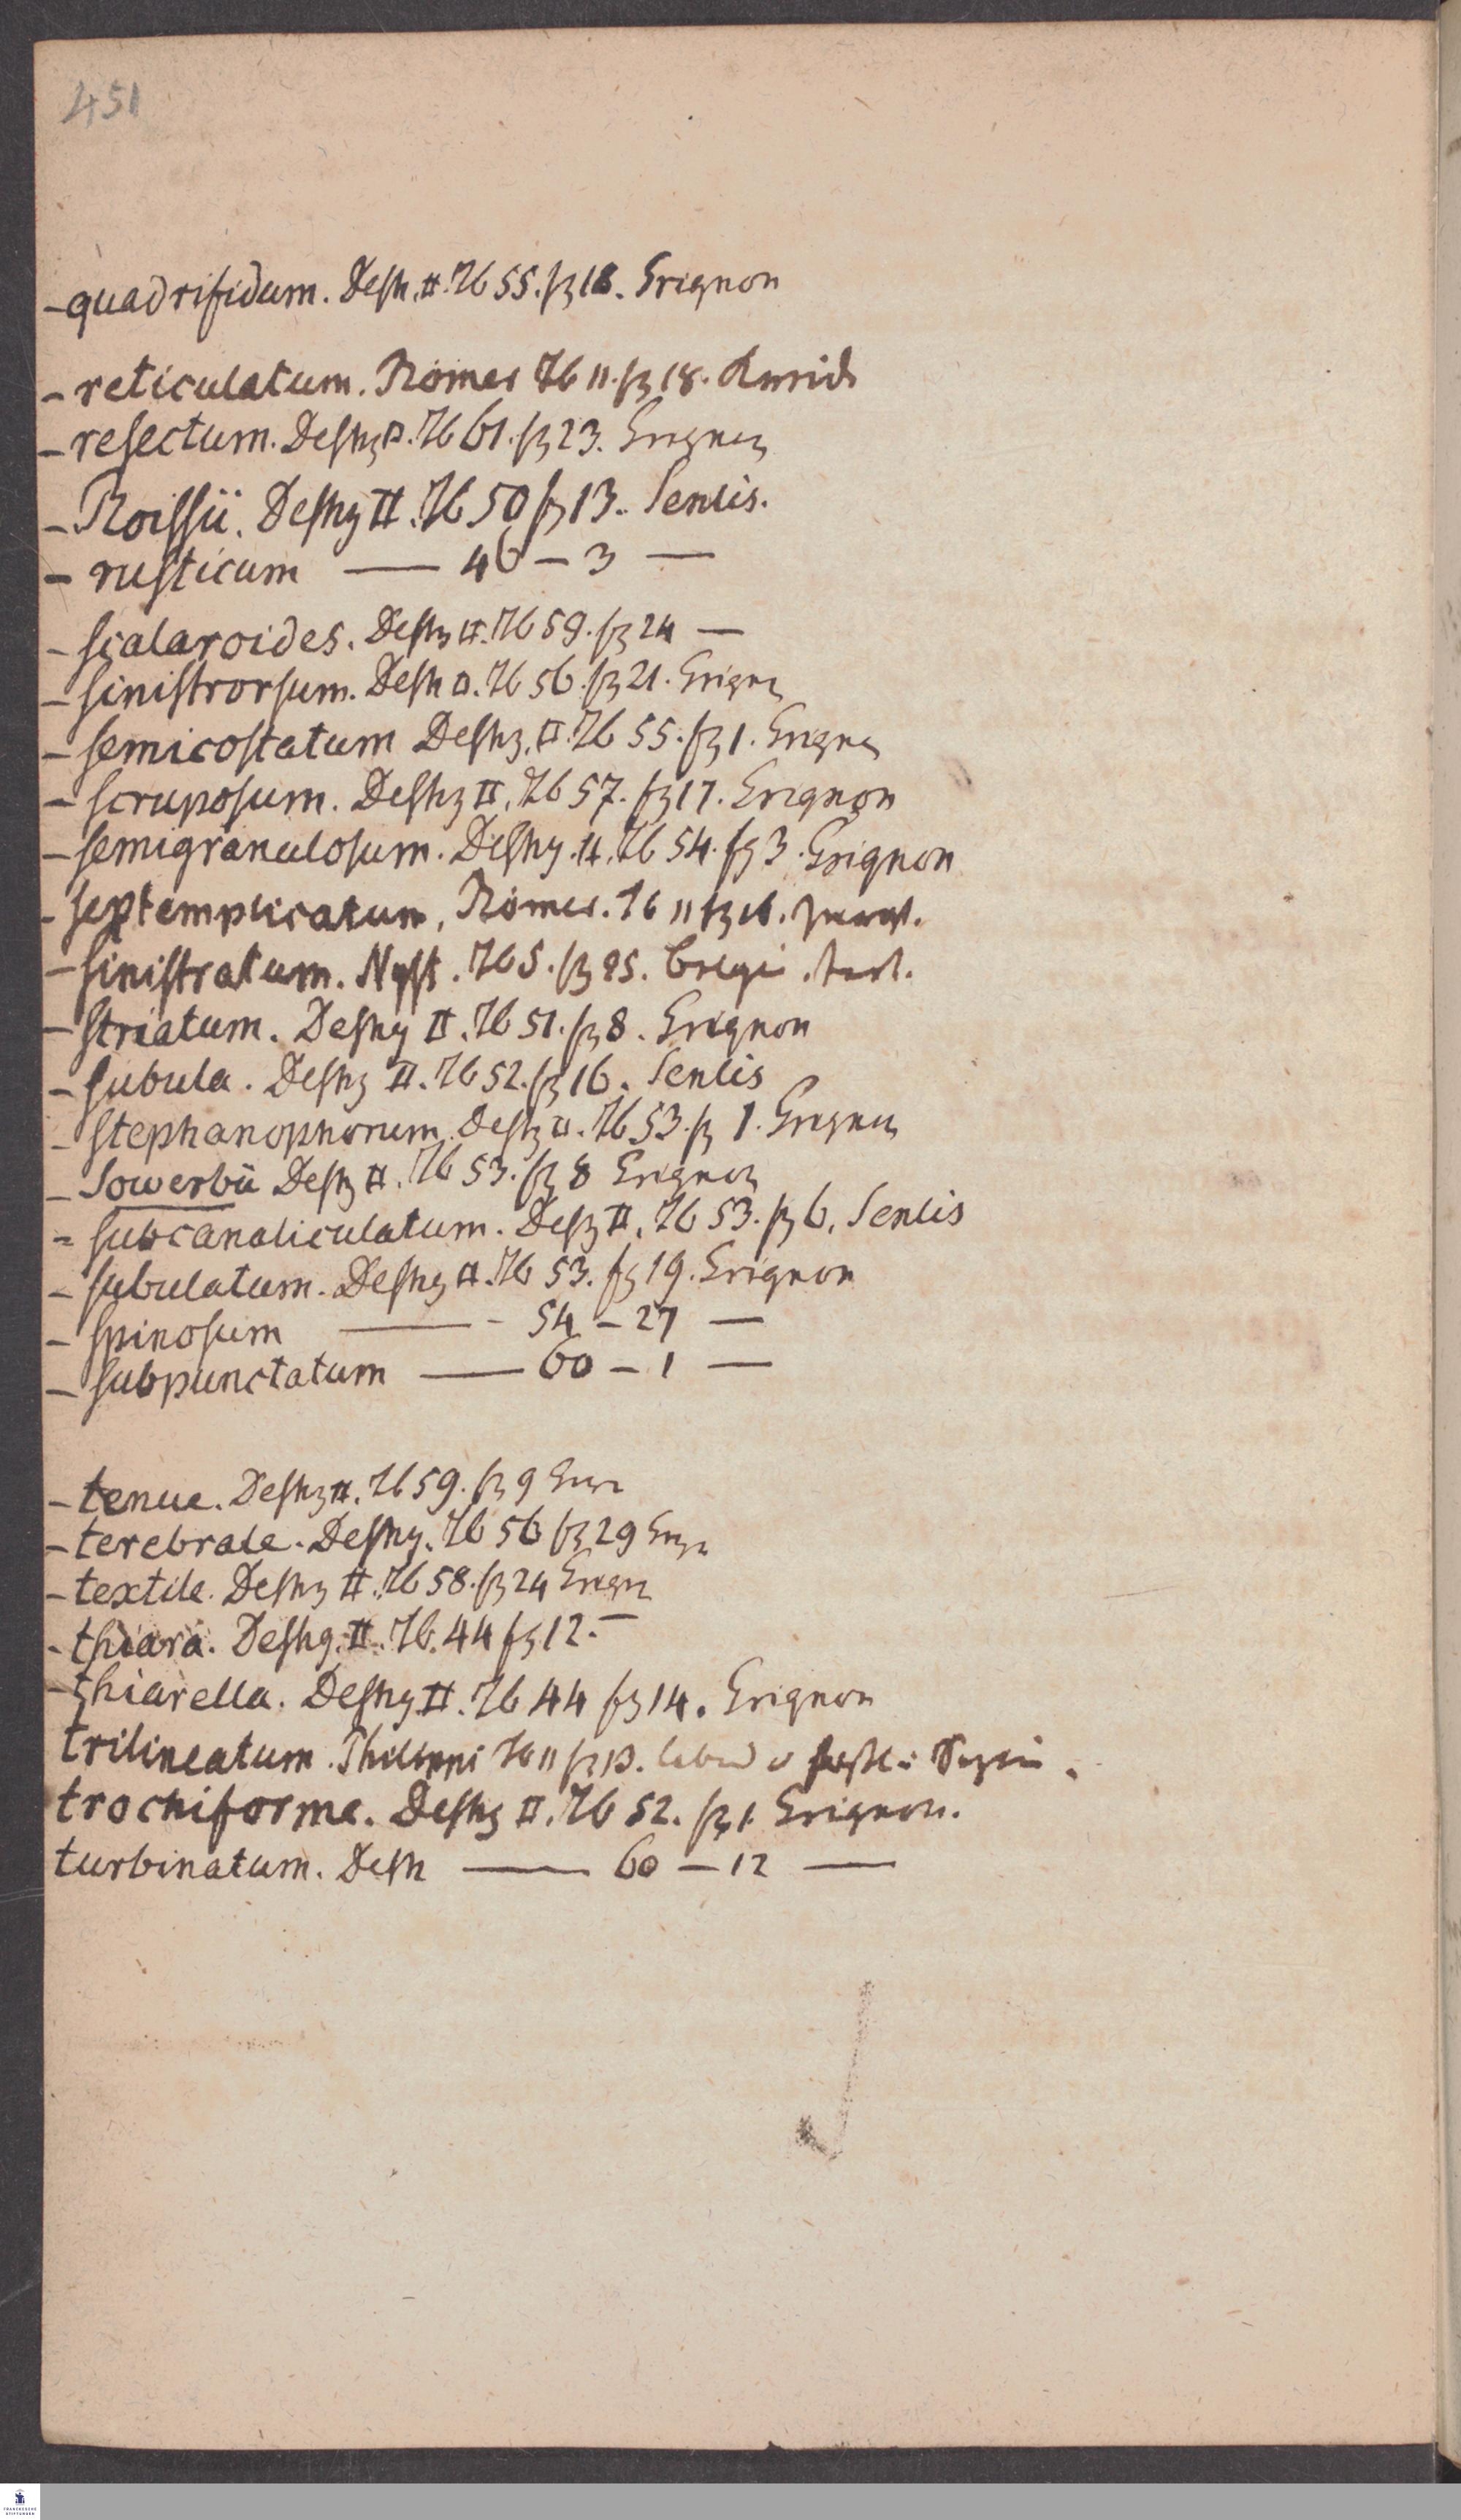 451
- quadrifidum. Desh. II. Tb 55. fg 18. Grignon
- reticulatum. Römer Tb 11. fg 18.
- resectum. Deshy II. Tb 61. fg 23. Grignon
- Roissii. Deshy II. Tb 50 fg 13. Senlis.
- rusticum — 46 – 3 —
- scalaroides. Desh II. Tb 59. fg 24 —
- sinistrorsum. Desh II. Tb 56. fg 21. Grign
- semicostatum Deshy. II. Tb 55. fg 1. Grignon
- scruposum. Deshy II. Tb 57. fg 17. Grignon
- semigranulosum. Deshy. II. Tb 54. fg 3. Grignon
- septemplicatum. Römer. Tb 11 fg 16.
- sinistratum. Nyst. Tb 5. fg 25. Belgi.
- striatum. Deshy II. Tb 51. fg 8. Grignon
- subula. Deshy II. Tb 52. fg 16. Senlis
- stephanophorum. Deshy II. Tb 53. fg 1. Grignon
- Sowerbii Deshy II. Tb 53. fg 8 Grignon
- subcanaliculatum. Deshy II. Tb 53. fg 6. Senlis
- subulatum. Deshy II. Tb 53. fg 19. Grignon
- spinosum — 54 – 27 —
- subpunctatum — 60 – 1 —
- tenue. Deshy II. Tb 59. fg 9 Grign
- terebrale. Deshy. Tb 56 fg 29 Grign
- textile. Deshy II. Tb 58. fg 24 Grign
- thiara. Deshy. II. Tb. 44 fg 12. —
- thiarella. Deshy II. Tb 44 fg 14. Grignon
trilineatum. Philippi Tb 11 fg 13.
trochiforme. Deshy II. Tb 52. fg 1. Grignon.
turbinatum. Desh — 60 – 12 —
FRANCKESCHE
STIFTUNGEN